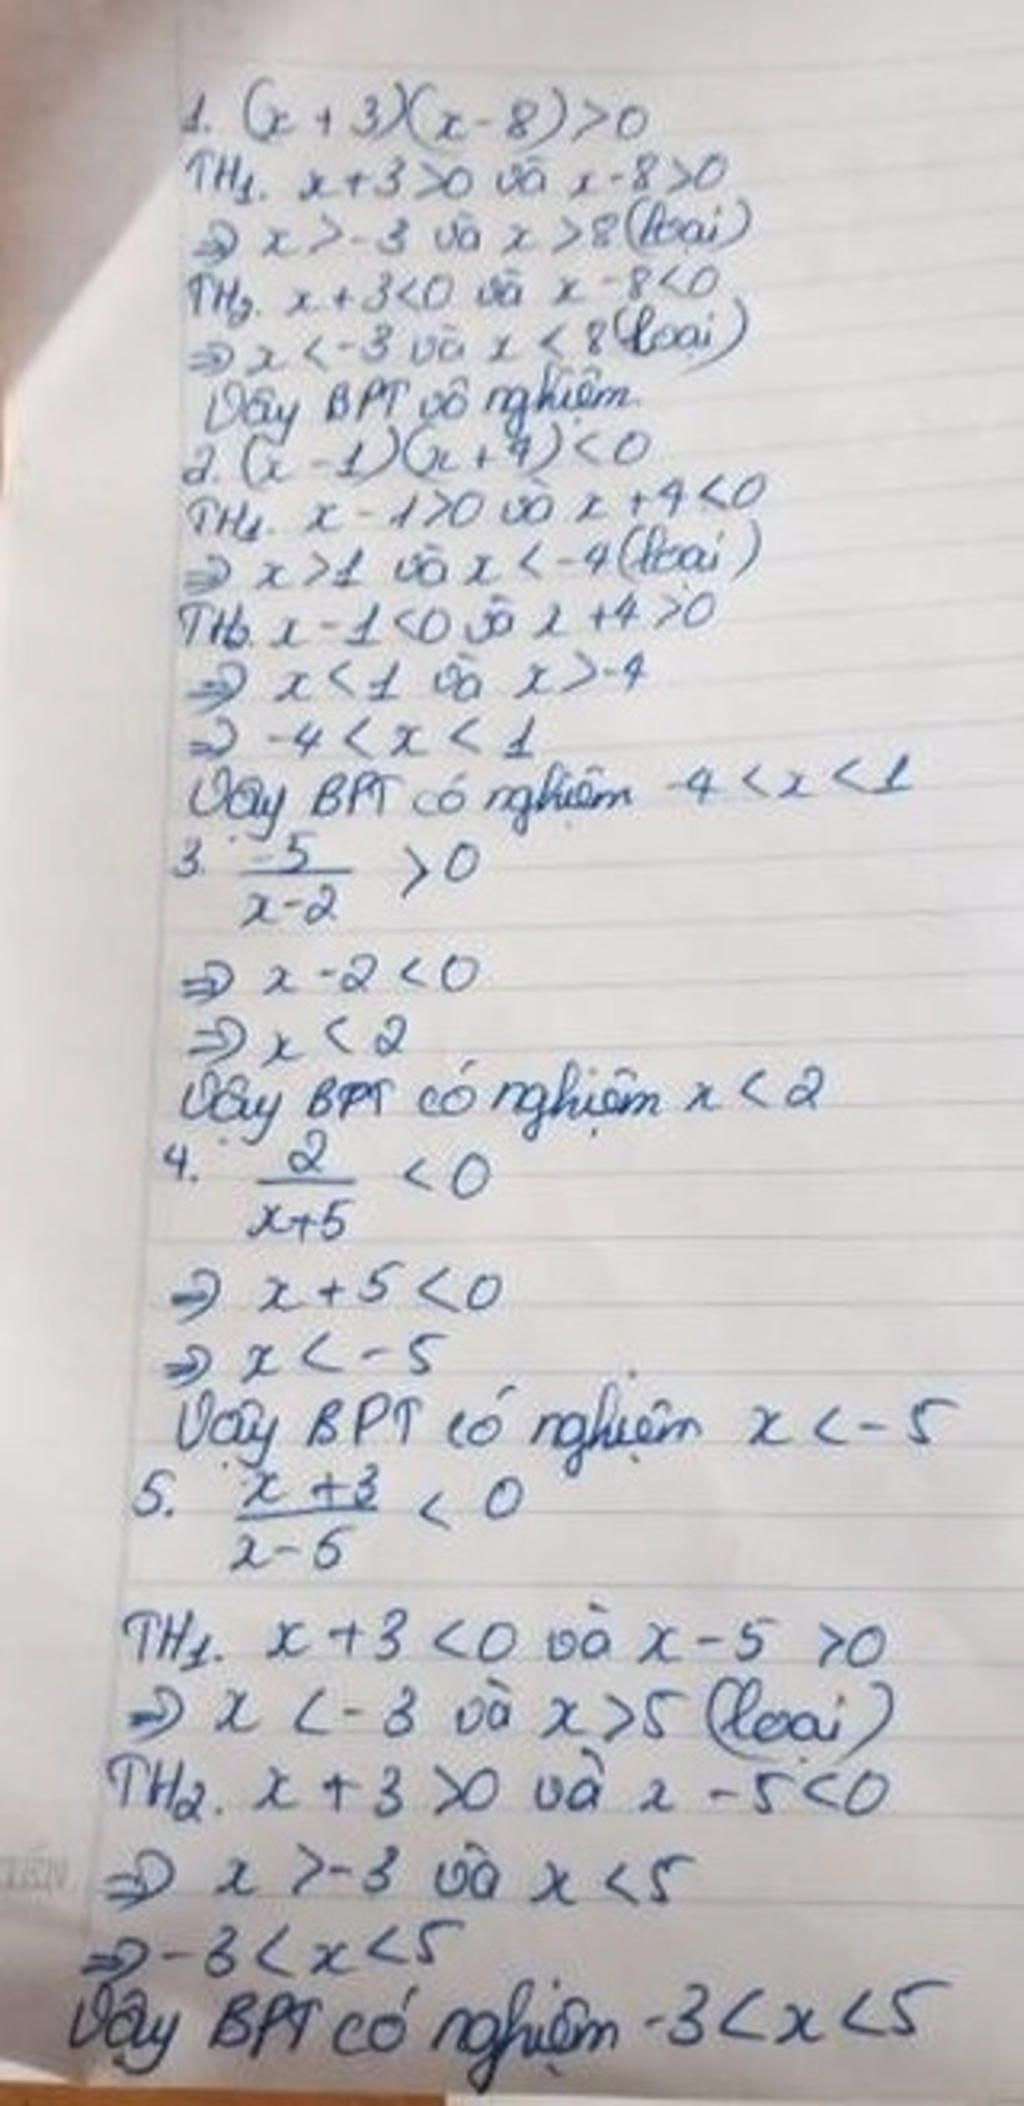 1. (x + 3)(x - 8) > 0
TH1. x + 3 > 0 và x - 8 > 0
⇒ x > -3 và x > 8 (loại)
TH2. x + 3 < 0 và x - 8 < 0
⇒ x < -3 và x < 8 (loại)
Vậy BPT vô nghiệm.
2. (x - 1)(x + 4) < 0
TH1. x - 1 > 0 và x + 4 < 0
⇒ x > 1 và x < -4 (loại)
TH2. x - 1 < 0 và x + 4 > 0
⇒ x < 1 và x > -4
⇒ -4 < x < 1
Vậy BPT có nghiệm -4 < x < 1
3. -5/(x - 2) > 0
⇒ x - 2 < 0
⇒ x < 2
Vậy BPT có nghiệm x < 2
4. 2/(x + 5) < 0
⇒ x + 5 < 0
⇒ x < -5
Vậy BPT có nghiệm x < -5
5. (x + 3)/(x - 5) < 0
TH1. x + 3 < 0 và x - 5 > 0
⇒ x < -3 và x > 5 (loại)
TH2. x + 3 > 0 và x - 5 < 0
⇒ x > -3 và x < 5
⇒ -3 < x < 5
Vậy BPT có nghiệm -3 < x < 5